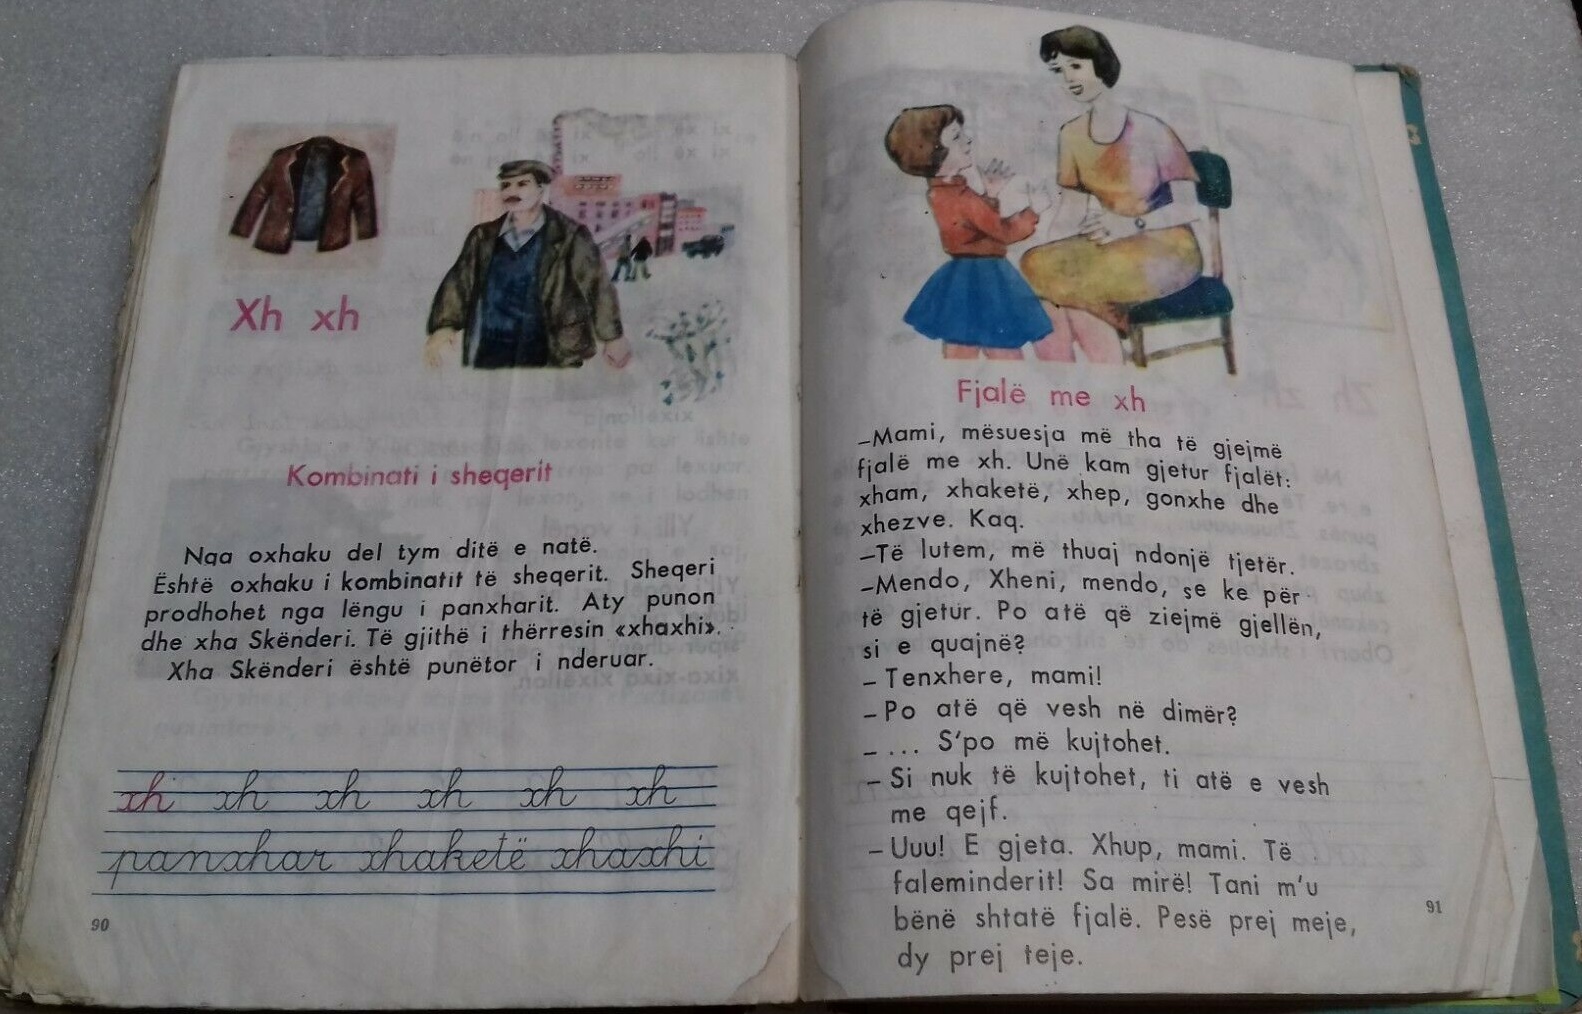 Xh xh
Kombinati i sheqerit
Nga oxhaku del tym ditë e natë.
Është oxhaku i kombinatit të sheqerit. Sheqeri
prodhohet nga lëngu i panxharit. Aty punon
dhe xha Skënderi. Të gjithë i thërresin «xhaxhi».
Xha Skënderi është punëtor i nderuar.
xh xh xh xh xh xh
panxhar xhaketë xhaxhi
90
Fjalë me xh
–Mami, mësuesja më tha të gjejmë
fjalë me xh. Unë kam gjetur fjalët:
xham, xhaketë, xhep, gonxhe dhe
xhezve. Kaq.
–Të lutem, më thuaj ndonjë tjetër.
–Mendo, Xheni, mendo, se ke për
të gjetur. Po atë që ziejmë gjellën,
si e quajnë?
– Tenxhere, mami!
– Po atë që vesh në dimër?
– ... S'po më kujtohet.
– Si nuk të kujtohet, ti atë e vesh
me qejf.
– Uuu! E gjeta. Xhup, mami. Të
faleminderit! Sa mirë! Tani m'u
bënë shtatë fjalë. Pesë prej meje,
dy prej teje.
91